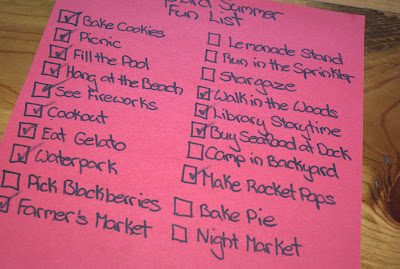 Summer
Fun List
Bake Cookies
Picnic
Fill the Pool
Hang at the Beach
See Fireworks
Cookout
Eat Gelato
Waterpark
Pick Blackberries
Farmer's Market
Lemonade Stand
Run in the Sprinkler
Stargaze
Walk in the Woods
Library Storytime
Buy Seafood at Dock
Camp in Backyard
Make Rocket Pops
Bake Pie
Night Market